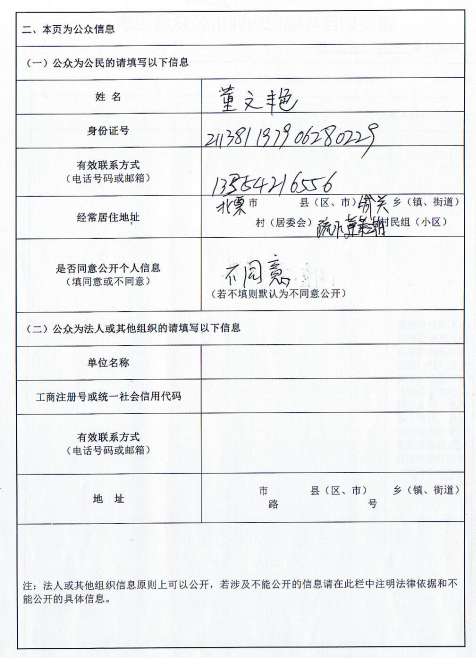 二、本页为公众信息
（一）公众为公民的请填写以下信息
姓 名 董文艳
身份证号 211381197906280229
有效联系方式
（电话号码或邮箱） 13554216556
经常居住地址 北票 市 县（区、市） 乡（镇、街道）
村（居委会） 村民组（小区）
是否同意公开个人信息
（填同意或不同意） 不同意
（若不填则默认为不同意公开）
（二）公众为法人或其他组织的请填写以下信息
单位名称
工商注册号或统一社会信用代码
有效联系方式
（电话号码或邮箱）
地 址 市 县（区、市） 乡（镇、街道）
路 号
注：法人或其他组织信息原则上可以公开，若涉及不能公开的信息请在此栏中注明法律依据和不
能公开的具体信息。